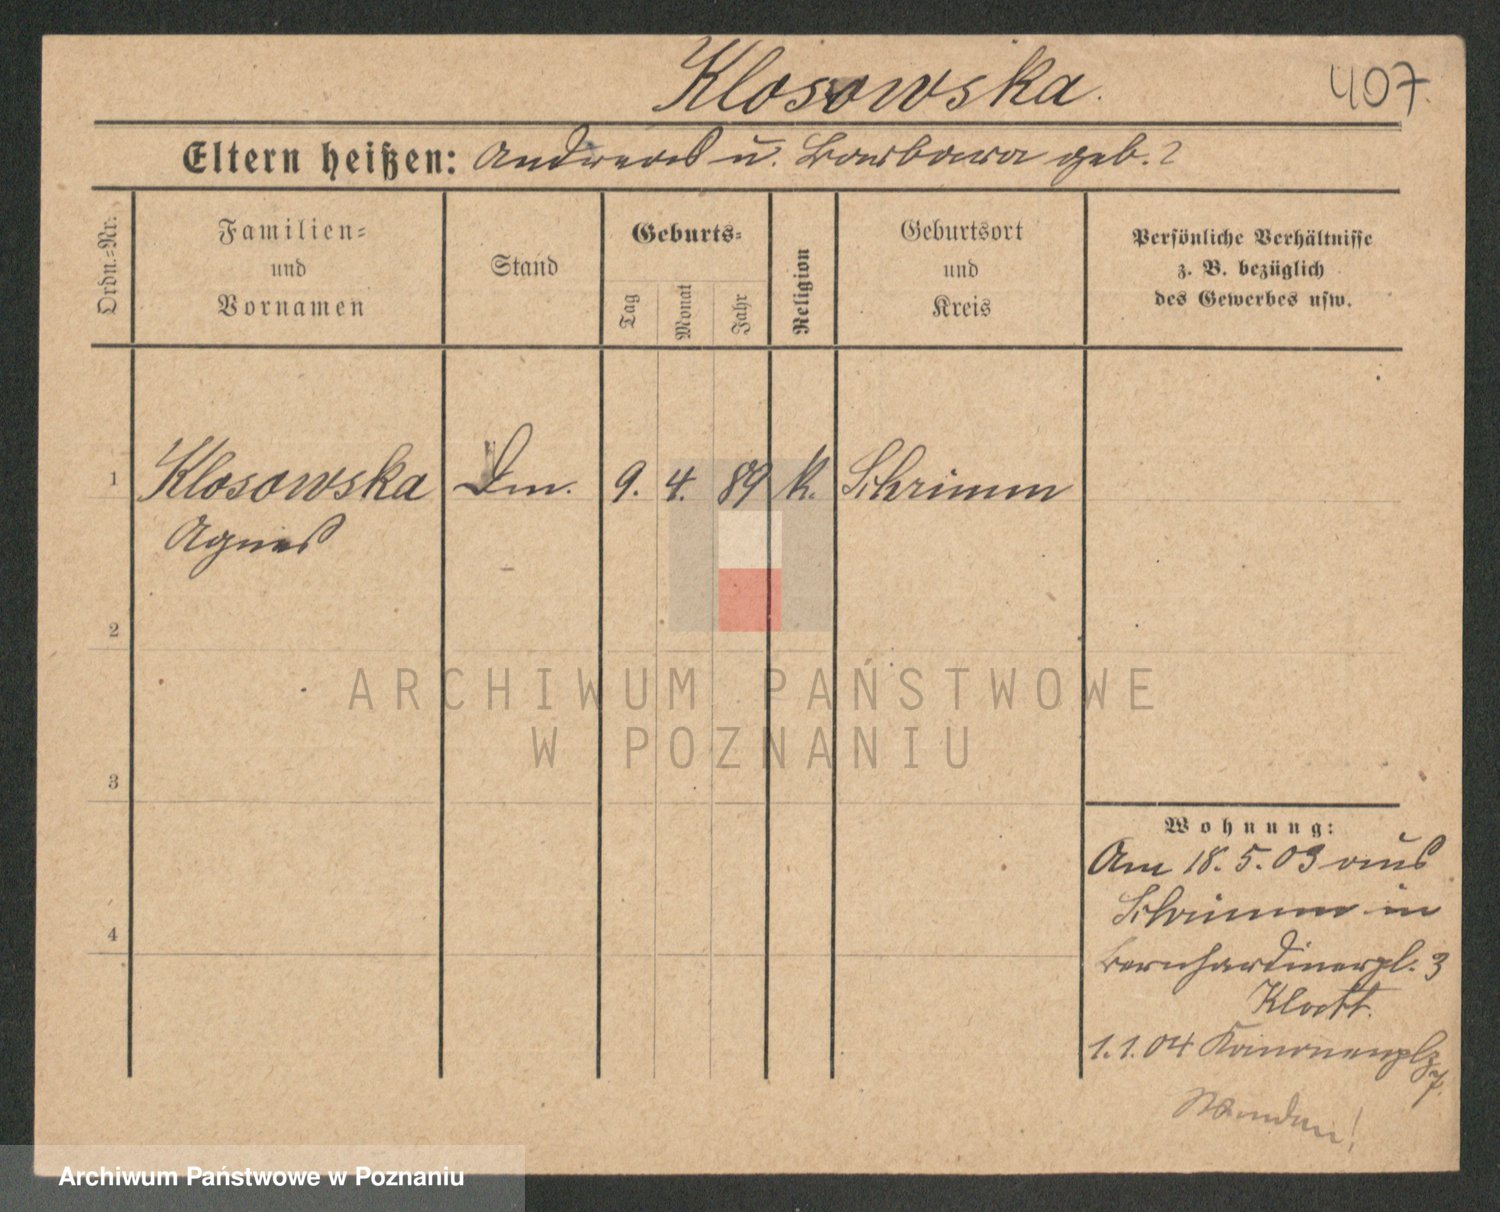 Klosowska.
407.
Eltern heißen: Andreas u. Barbara geb. ?
Ordn.-Nr.
Familien-
und
Vornamen
Stand
Geburts-
Tag
Monat
Jahr
Religion
Geburtsort
und
Kreis
Persönliche Verhältnisse
z. B. bezüglich
des Gewerbes usw.
1 Klosowska Dm. 9. 4. 89 k. Schrimm
Agnes
2
3
4
ARCHIWUM PAŃSTWOWE
W POZNANIU
Wohnung:
Am 18. 5. 03 aus
Schrimm in
Bernhardinerpl. 3
Klatt.
1. 1. 04 Kanonenplz
7.
Wenden!
Archiwum Państwowe w Poznaniu